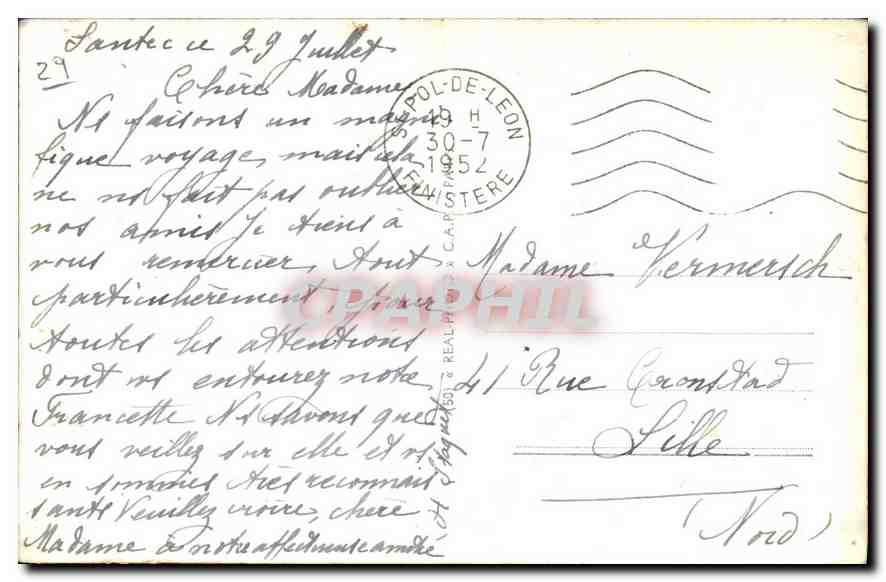 Santec le 29 Juillet
29
Chère Madame
Ns faisons un magni
fique voyage, mais cela
ne ns fait pas oublier
nos amis Je tiens à
vous remercier, tout
particulièrement, pour
toutes les attentions
dont vs entourez notre
Francette Ns savons que
vous veillez sur elle et vs
en sommes très reconnais
sants Veuillez croire, chère
Madame à notre affectueuse amitié
ST POL-DE-LEON
19 H
30-7
1952
FINISTERE
REAL-PHOTO C.A.P. PARIS
CPAPHIL
Madame Vermersch
41 Rue Cronstad
Lille
(Nord)